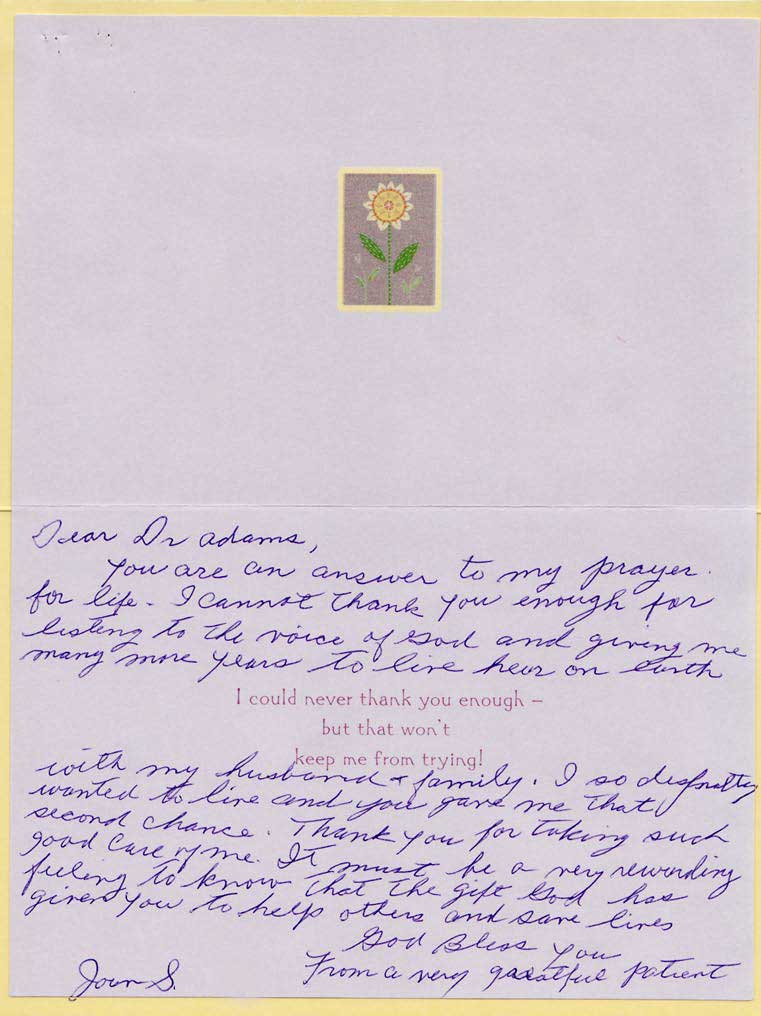 Dear Dr adams,
You are an answer to my prayer.
for life. I cannot thank you enough for
listing to the voice of God and giving me
many more years to live hear on earth
I could never thank you enough –
but that won't
keep me from trying!
with my husband + family. I so
wanted to live and you gave me that
second chance. Thank you for taking such
good care of me. It must be a very rewarding
feeling to know that the gift God has
given you to help others and save lives
God Bless you
From a very patient
S.